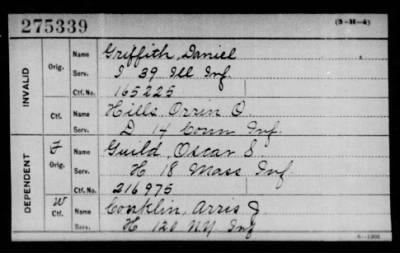 275339 (3-H-4)
INVALID
Orig. Name Griffith, Daniel
Serv. I 39 Ill Inf.
Ctf. No. 165225
Ctf. Name Hills Orrin O.
Serv. D 14 Conn Inf.
DEPENDENT
F Orig. Name Guild, Oscar S.
Serv. H 18 Mass Inf
Ctf. No. 216975
W Ctf. Name Conklin, Arris J.
Serv. H 120 N.Y. Inf